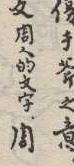 傷于斧之意
文周人的文字.周